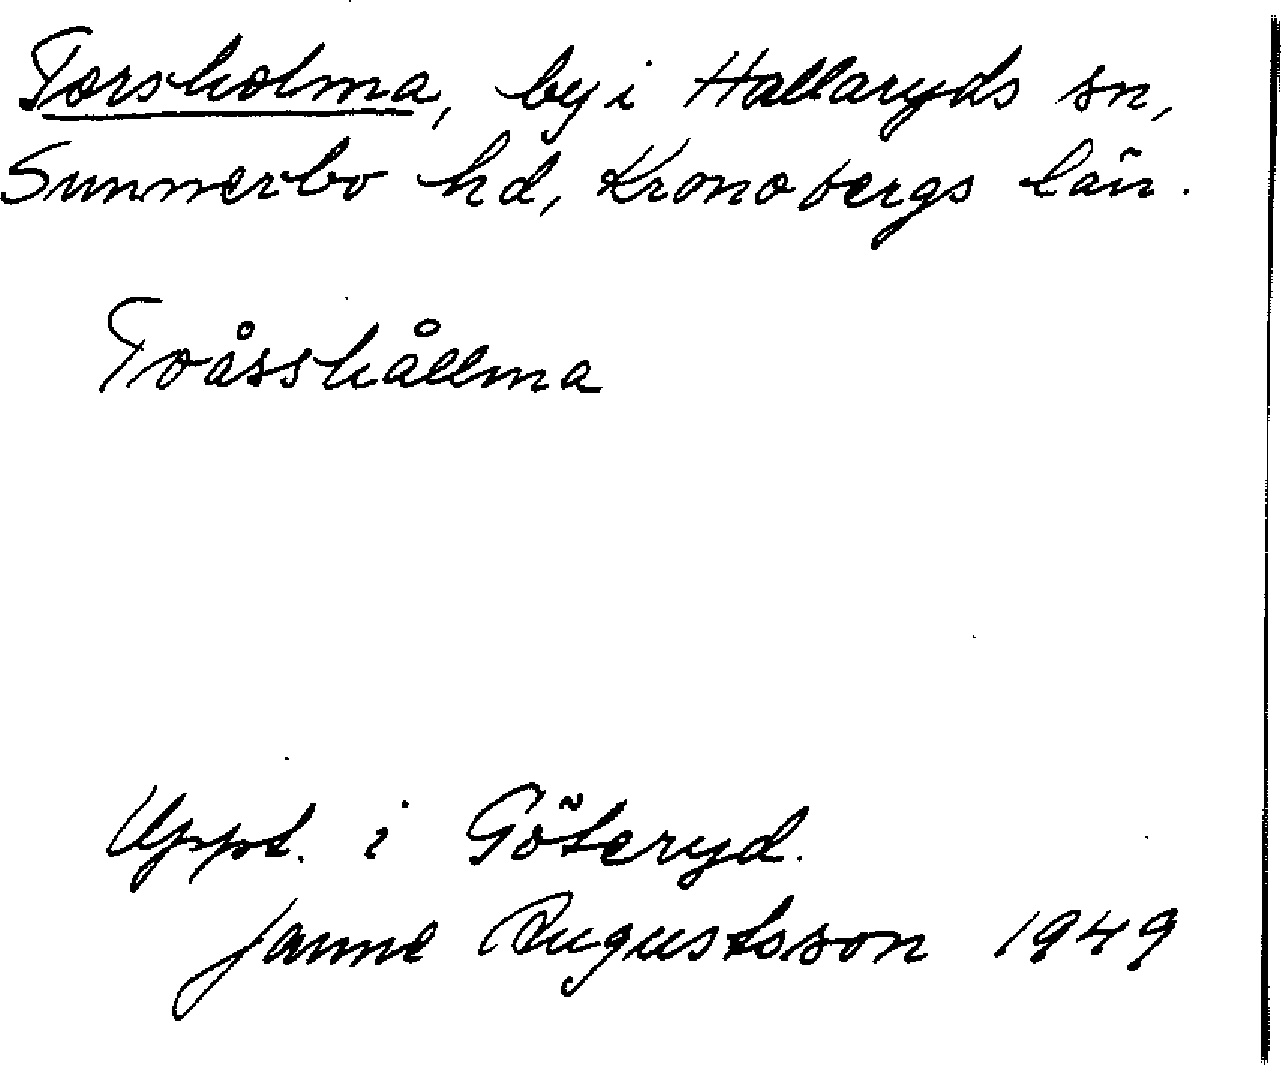 Torsholma, by i Hallaryds sn,
Sunnerbo hd, Kronobergs län.
Toåsshållma
Uppt. i Göteryd.
Janne Augustsson 1949